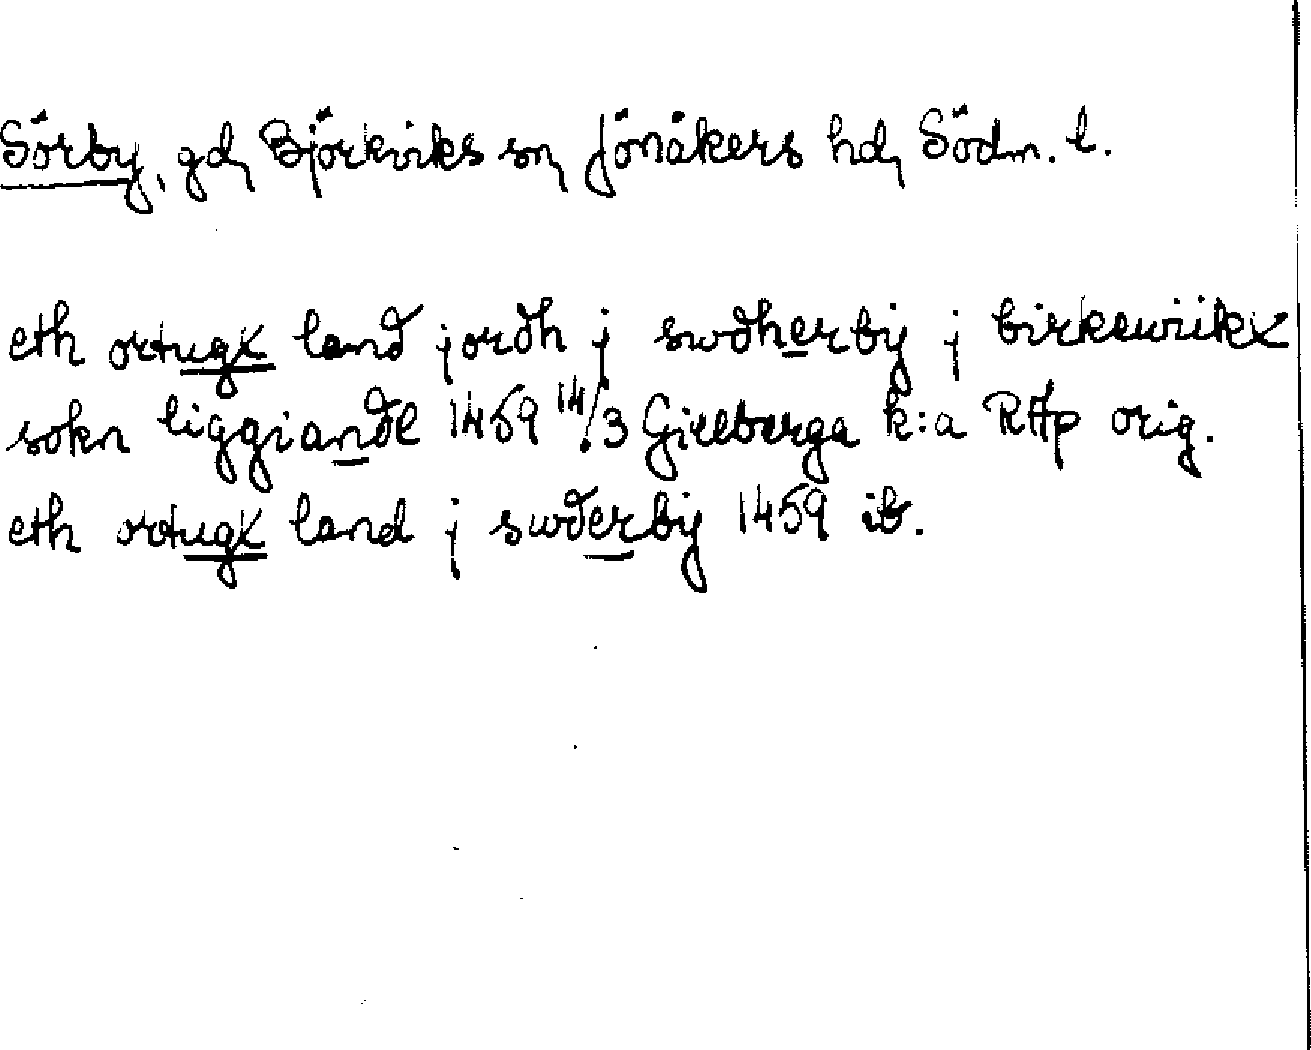 Sörby, gd, Björkviks sn, Jönåkers hd, Södm. l.
eth ortugx land jordh j swdherbij j birkewiikx
sokn liggiande 1459 14/3 Gillberga k:a RAp orig.
eth ortugx land j swderbij 1459 ib.